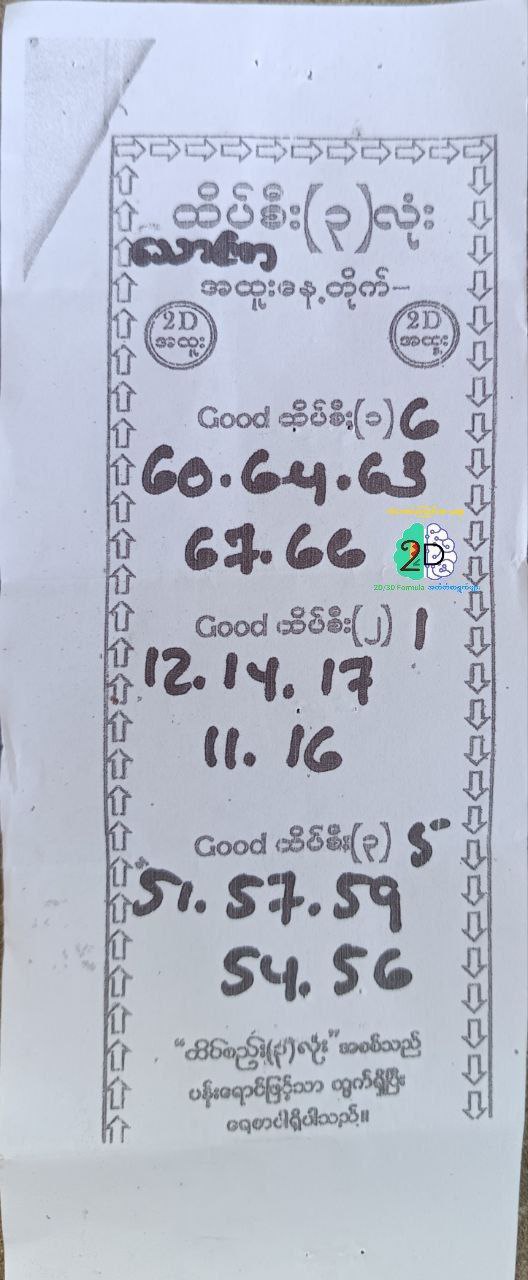 ထိပ်စီး(၃)လုံး
သောကြာ
အထူးနေ့တိုက်-
2D
အထူး
2D
အထူး
Good ထိပ်စီး(၁) 6
60.64.63
67.66
2D
2D/3D Formula
Good ထိပ်စီး(၂) 1
12.14.17
11.16
Good ထိပ်စီး(၃) 5
51.57.59
54.56
"ထိပ်စည်း(၃)လုံး" အစစ်သည်
ပန်းရောင်ဖြင့်သာ ထွက်ရှိပြီး
ရေစာပါရှိပါသည်။